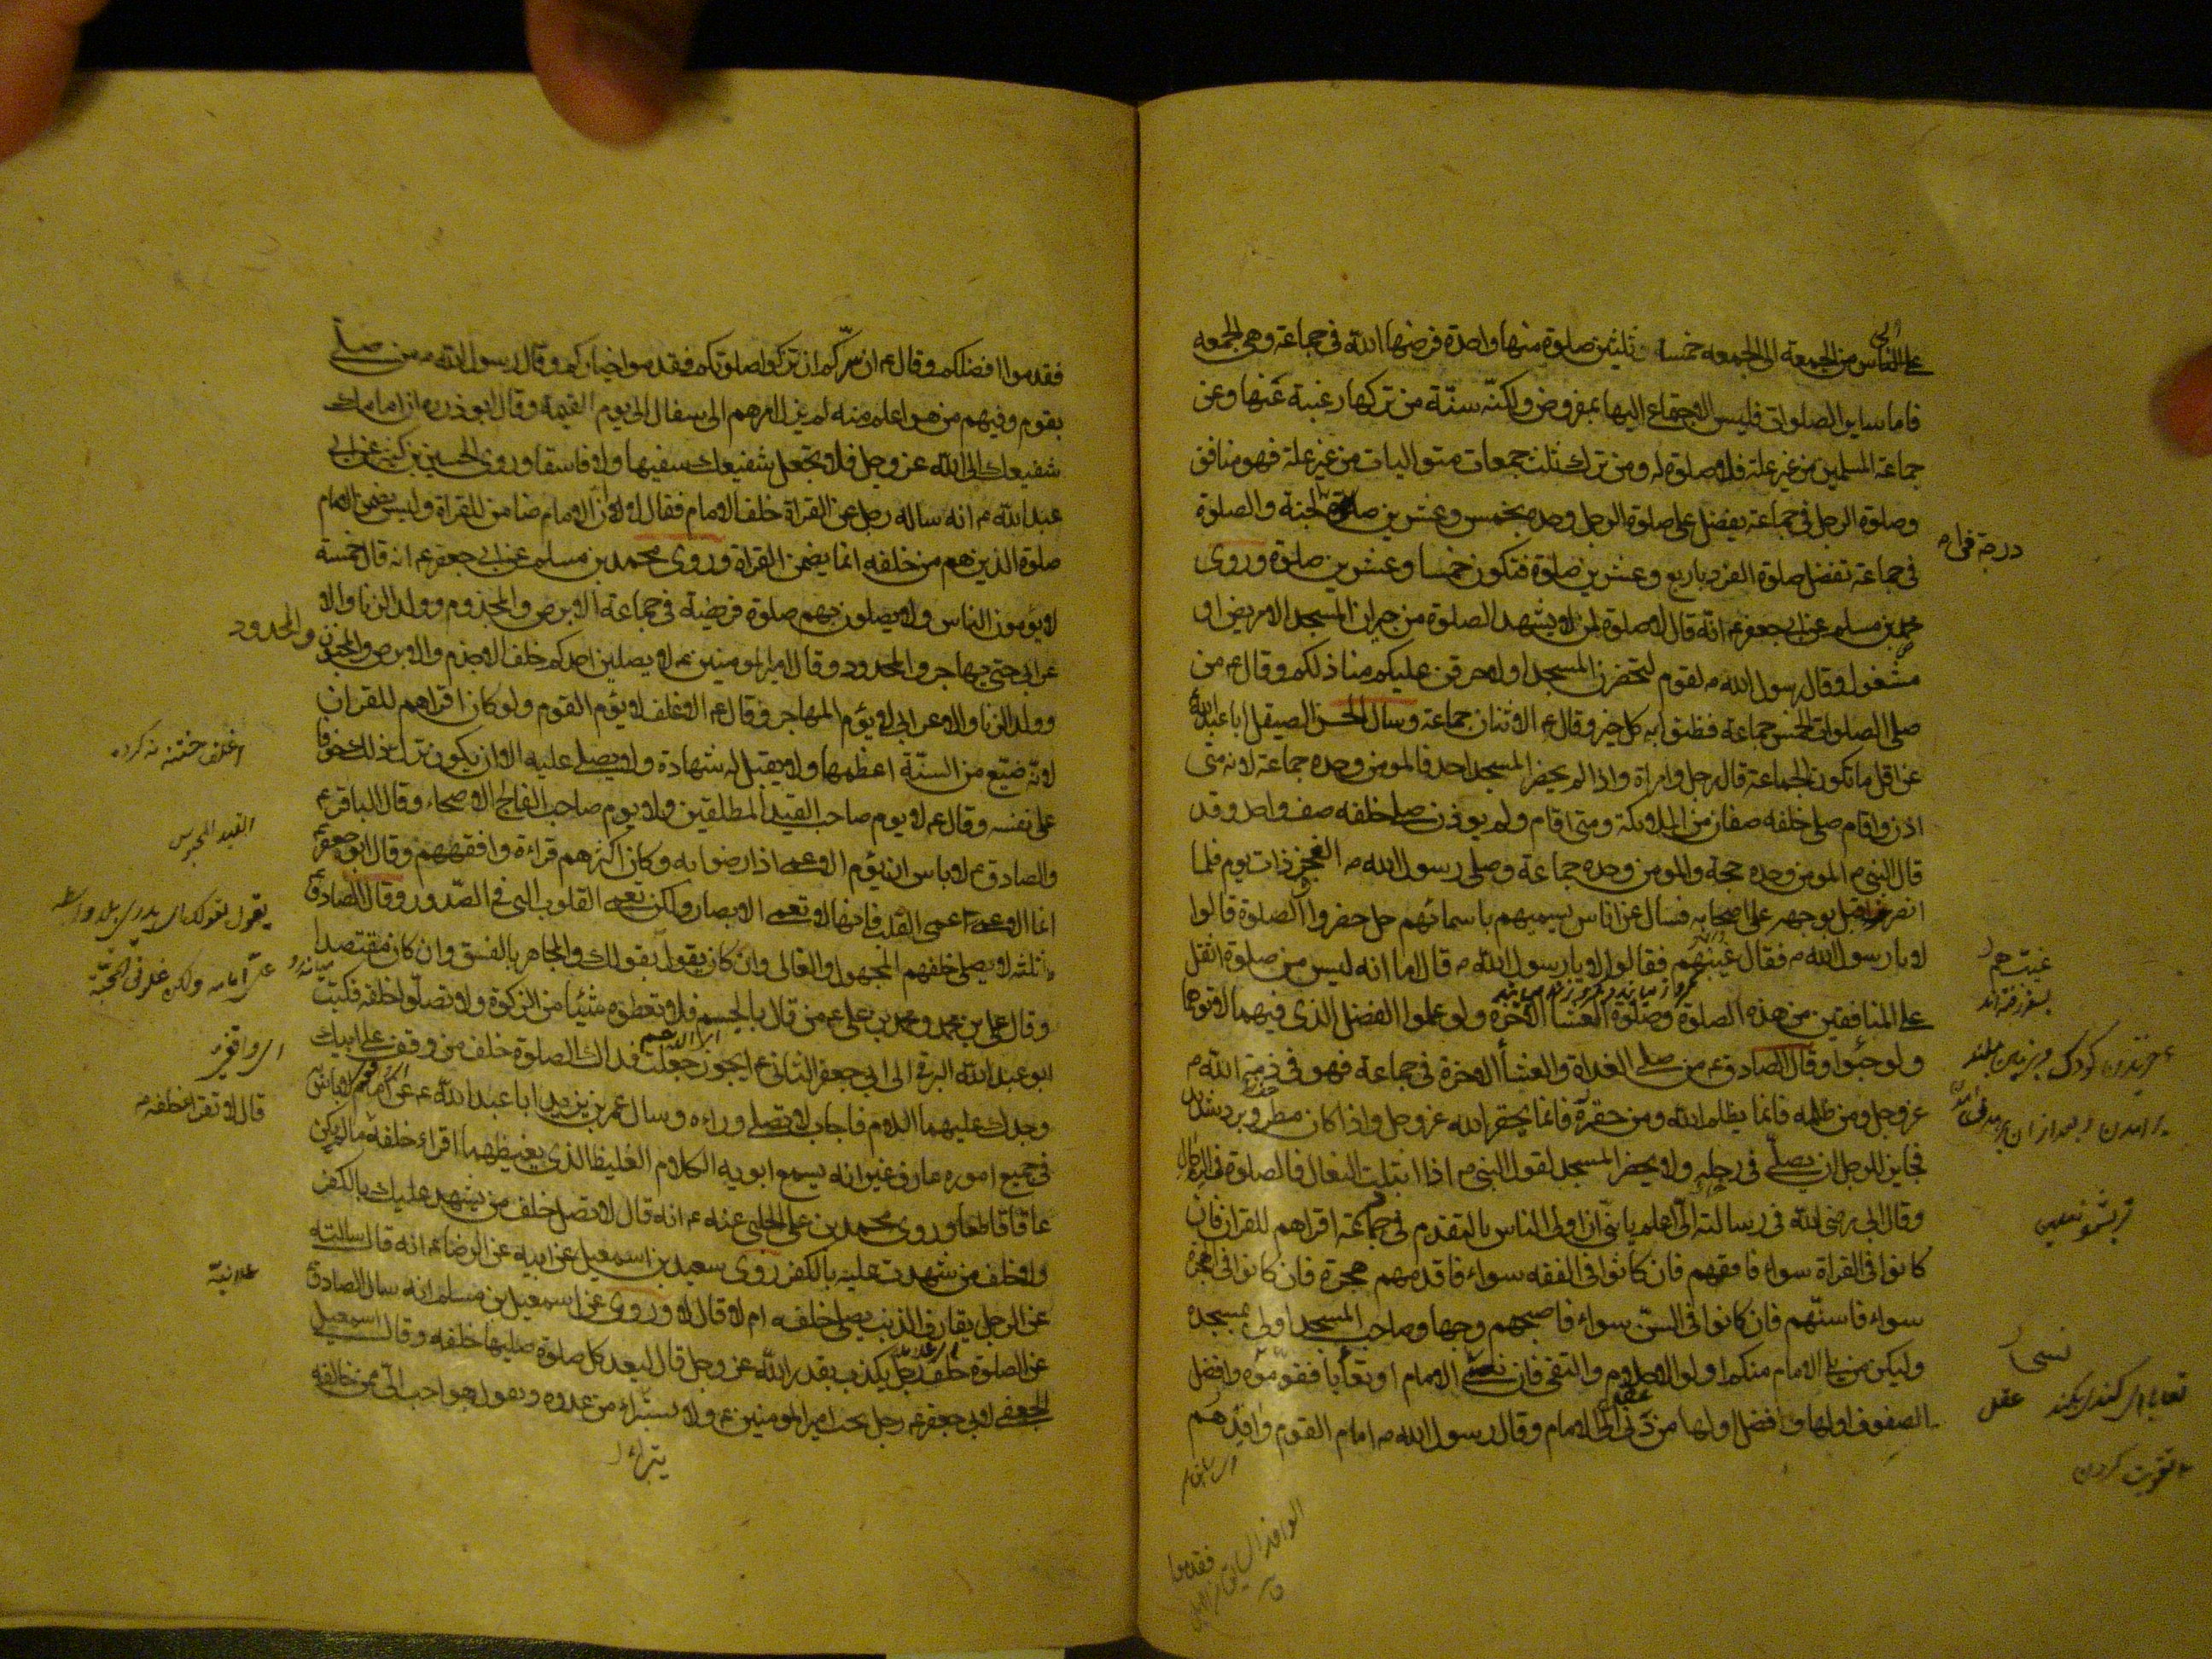 على الناس من الجمعة الى الجمعه خمسا و ثلثين صلوة منها واحدة فرضها الله فى جماعة وهى الجمعه
فاما ساير الصلوات فليس الاجتماع اليها بمفروض ولكنّه سنّة من تركها رغبة عنها وعن
جماعة المسلمين من غير علة فلا صلوة له ومن ترك ثلث جمعات متواليات من غير علة فهو منافق
وصلوة الرجل فى جماعة يفضل على صلوة الرجل وحده بخمس وعشرين الجنة والصلوة
درجة فى
فى جماعة تفضل صلوة الفرد باربع وعشرين صلوة فتكون خمسا وعشرين صلوة وروى
محمد بن مسلم عن ابى جعفر ع انّه قال لا صلوة لمن لا يشهد الصلوة من جيران المسجد الا مريض او
مشغول وقال رسول الله ص لقوم لتحضرن المسجد او لاحرقن عليكم منازلكم وقال ع من
صلى الصلوات الخمس جماعة فظنوا به كل خير وقال ع الاثنان جماعة وسال الحسن الصيقل ابا عبد الله
عن اقل ما تكون الجماعة قال رجل وامراة واذا لم يحضر المسجد احد فالمومن وحده جماعة لانه متى
اذن واقام صلى خلفه صفان من الملائكة ومتى اقام ولم يوذن صلى خلفه صف واحد وقد
قال النبى ص المومن وحده حجة والمومن وحده جماعة وصلى رسول الله ص الفجر ذات يوم فلما
انصرف اقبل بوجهه على اصحابه فسال عن اناس يسميهم باسمائهم هل حضروا الصلوة قالوا
لا يا رسول الله ص فقال غيبتهم فقالوا لا يا رسول الله ص قال اما انه ليس من صلوة اثقل
على المنافقين من هذه الصلوة وصلوة العشا الاخرة ولو علموا الفضل الذى فيهما لاتوهما
ولو حبوا وقال الصادق ع من صلى الغداة والعشأ الاخرة فى جماعة فهو فى ذمة الله
عز وجل ومن ظلمه فانما يظلم الله ومن حقره فانما يحقر الله عز وجل واذا كان مطر وبرد شديد
فجايز للرجل ان يصلّى فى رحله ولا يحضر المسجد لقول النبى ص اذا ابتلت النعال فالصلوة فى الرحال
وقال ابى رضى الله فى رسالته الىّ اعلم يا بنىّ ان اولى الناس بالتقدم فى جماعة اقراهم للقران فان
كانوا فى القراة سواء فافقههم فان كانوا فى الفقه سواء فاقدمهم هجرة فان كانوا فى الهجرة
سواء فاسنّهم فان كانوا فى السن سواء فاصبحهم وجها وصاحب المسجد اولى بمسجده
وليكن من يلى الامام منكم اولوا الاحلام والتقى فان نسى الامام او تعايا فقوّموه وافضل
الصفوف اولها وافضل اولها من دنى الى الامام وقال رسول الله ص امام القوم وافدهم
فقدموا
فقدموا افضلكم وقال ع ان سرّكم ان تزكوا صلوتكم فقدموا خياركم وقال رسول الله ص من صلى
بقوم وفيهم من هو اعلم منه لم يزل امرهم الى سفال الى يوم القيمة وقال ابو ذر ره ان امامك
شفيعك الى الله عز وجل فلا تجعل شفيعك سفيها ولا فاسقا وروى الحسين بن كثير عن ابى
عبد الله ع انه ساله رجل عن القراة خلف الامام فقال لا ان الامام ضامن للقراة وليس يضمن الامام
صلوة الذين هم من خلفه انما يضمن القراة وروى محمد بن مسلم عن ابى جعفر ع انه قال خمسة
لا يؤمون الناس ولا يصلون بهم صلوة فريضة فى جماعة الابرص والمجذوم وولد الزنا والا
عرابى حتى يهاجر والمحدود وقال امير المومنين ع لا يصلين احدكم خلف الاجذم والابرص والمجنون والمحدود
وولد الزنا والاعرابى لا يؤم المهاجر وقال ع الاغلف لا يؤم القوم ولو كان اقراهم للقران
لانّه ضيّع من السنّة اعظمها ولا يقبل له شهادة ولا يصلى عليه الا ان يكون ترك ذلك خوفا
اغلف ختنه نه كرده
على نفسه وقال ع لا يوم صاحب القيد المطلقين ولا يوم صاحب الفالج الاصحاء وقال الباقر ع
والصادق ع لا باس ان يؤم الاعمى اذا رضوا به وكان اكثرهم قراءة وافقههم وقال ابو جعفر ع
انما الاعمى اعمى القلب فانها لا تعمى الابصار ولكن تعمى القلوب التى فى الصّدور وقال الصادق ع
ثلثة لا يصلى خلفهم المجهول والغالى وان كان يقول بقولك والمجاهر بالفسق وان كان مقتصدا
وقال على بن محمد ومحمد بن على ع من قال بالجسم فلا تعطوه شيئا من الزكوة ولا تصلّوا خلفه فكتب
ابو عبد الله البرقى الى ابى جعفر الثانى ع ايجوز جعلت فداك الصلوة خلف من وقف على ابيك
وجدك عليهما السلام فاجاب لا تصلى وراءه وسال عمر بن يزيد ابا عبد الله ع عن امام لا باس
فى جميع اموره عارف غير انه يسمع ابويه الكلام الغليظ الذى يغيظهما اقراء خلفه
قال لا تقرا خلفه ما لم يكن
عاقا قاطعا وروى محمد بن على الحلبى عنه ع انه قال لا تصل خلف من يشهد عليك بالكفر
ولا خلف من شهدت عليه بالكفر روى سعيد بن اسمعيل عن ابيه عن الرضا ع انه قال سالته
عن الرجل يقارف الذنب يصلى خلفه ام لا قال لا وروى عن اسمعيل بن مسلم انه سال الصادق ع
عن الصلوة خلف رجل يكذب بقدر الله عز وجل قال ليعد كل صلوة صليها خلفه وقال اسمعيل
الجعفى لابى جعفر ع رجل يحب امير المومنين ع ولا يتبراء من عدوه ويقول هو احب الىّ ممن خالفه